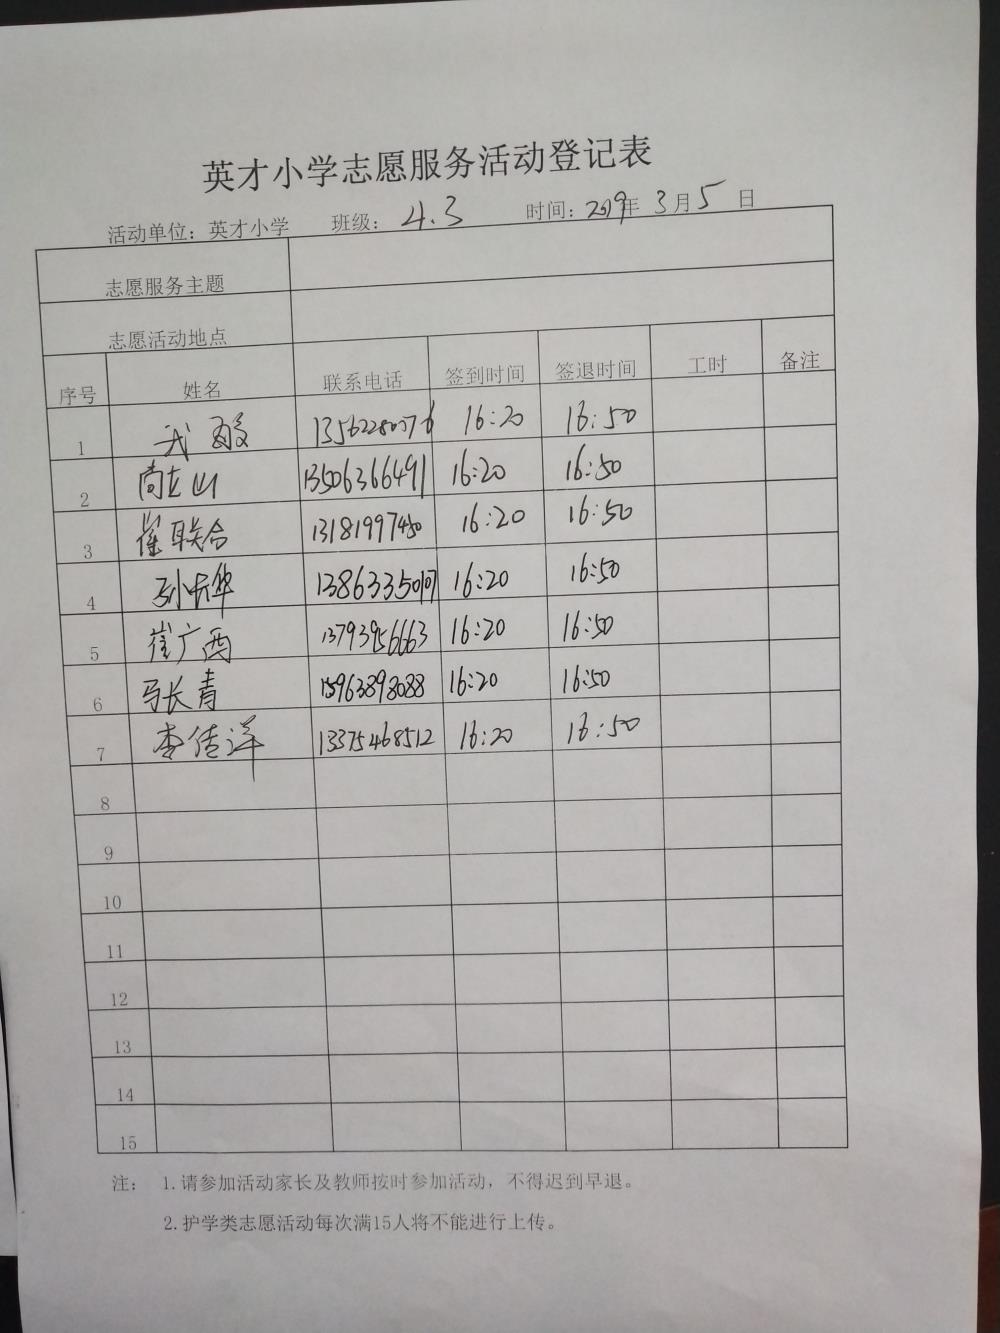 英才小学志愿服务活动登记表
活动单位：英才小学 班级：4.3 时间：2019年3月5日
志愿服务主题
志愿活动地点
序号 姓名 联系电话 签到时间 签退时间 工时 备注
1 16:20 16:50
2 尚立山 13506366491 16:20 16:50
3 崔联合 13181997450 16:20 16:50
4 孙长华 13863335017 16:20 16:50
5 崔广西 13793956663 16:20 16:50
6 马长青 15963898088 16:20 16:50
7 李传洋 13375468512 16:20 16:50
8
9
10
11
12
13
14
15
注： 1.请参加活动家长及教师按时参加活动，不得迟到早退。
2.护学类志愿活动每次满15人将不能进行上传。